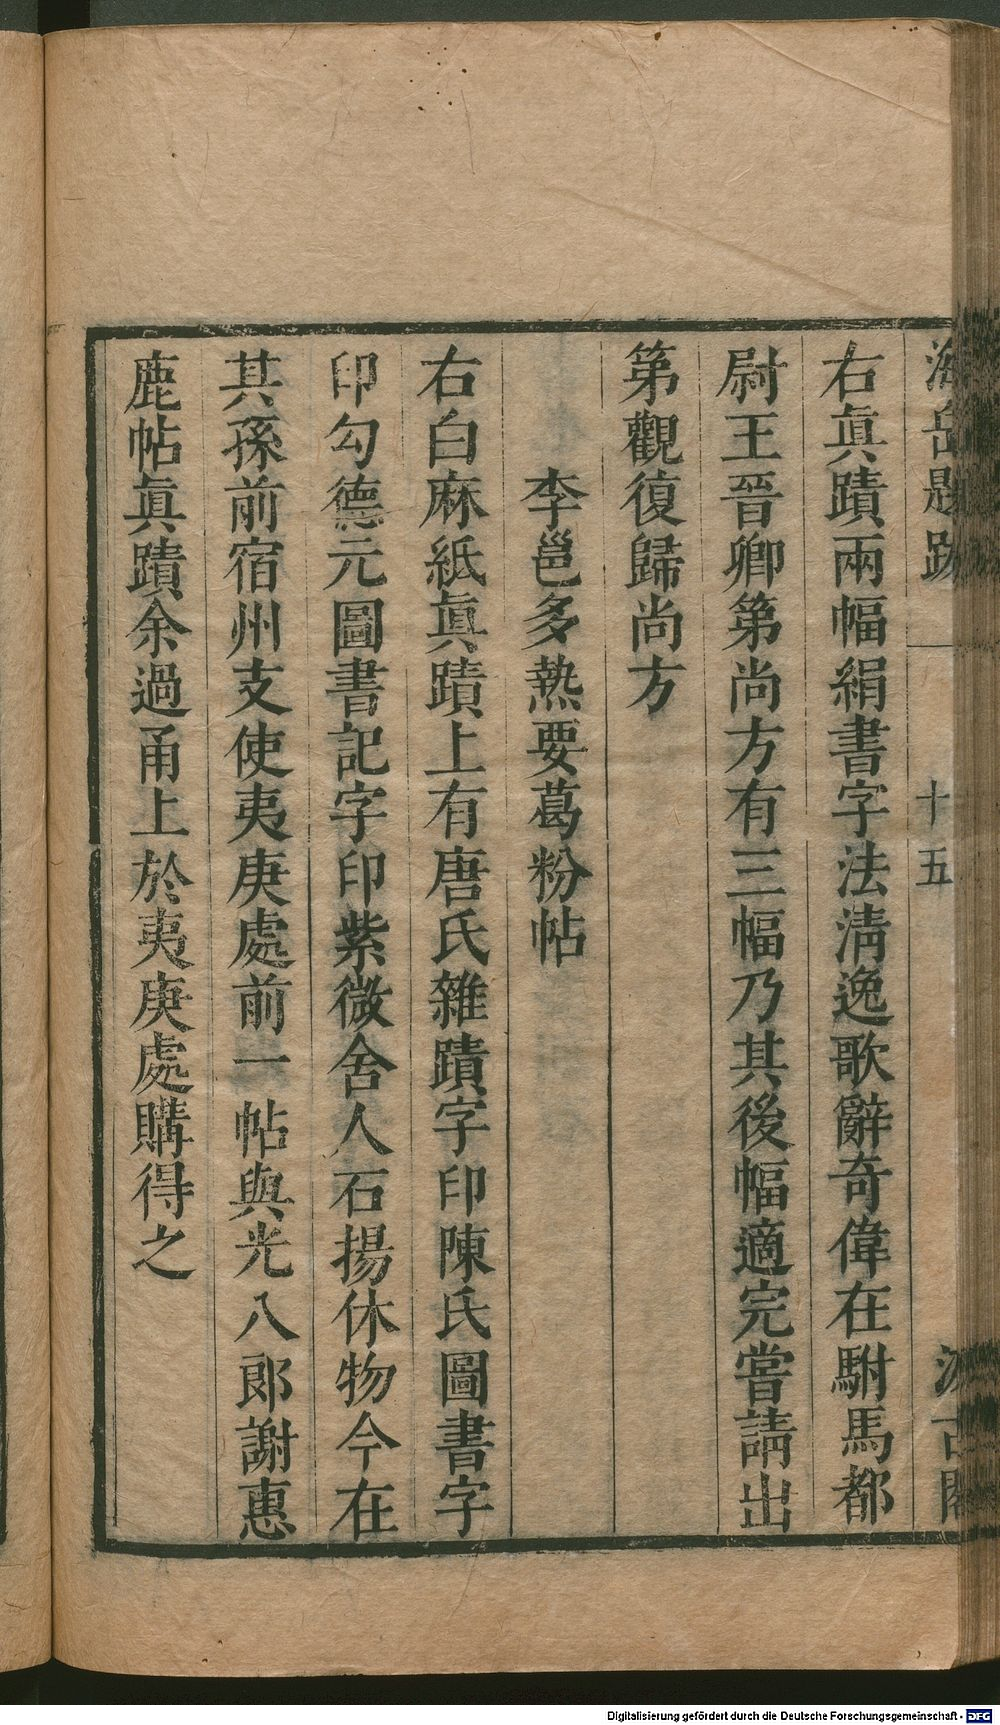 海岳題跋 十五 汲古閣
右眞蹟兩幅絹書字法清逸歌辭奇偉在駙馬都
尉王晉卿第尚方有三幅乃其後幅適完嘗請出
第觀復歸尚方
李邕多熱要葛粉帖
右白麻紙眞蹟上有唐氏雜蹟字印陳氏圖書字
印勾德元圖書記字印紫微舍人石揚休物今在
其孫前宿州支使夷庚處前一帖與光八郎謝惠
鹿帖眞蹟余過甬上於夷庚處購得之
Digitalisierung gefördert durch die Deutsche Forschungsgemeinschaft - DFG